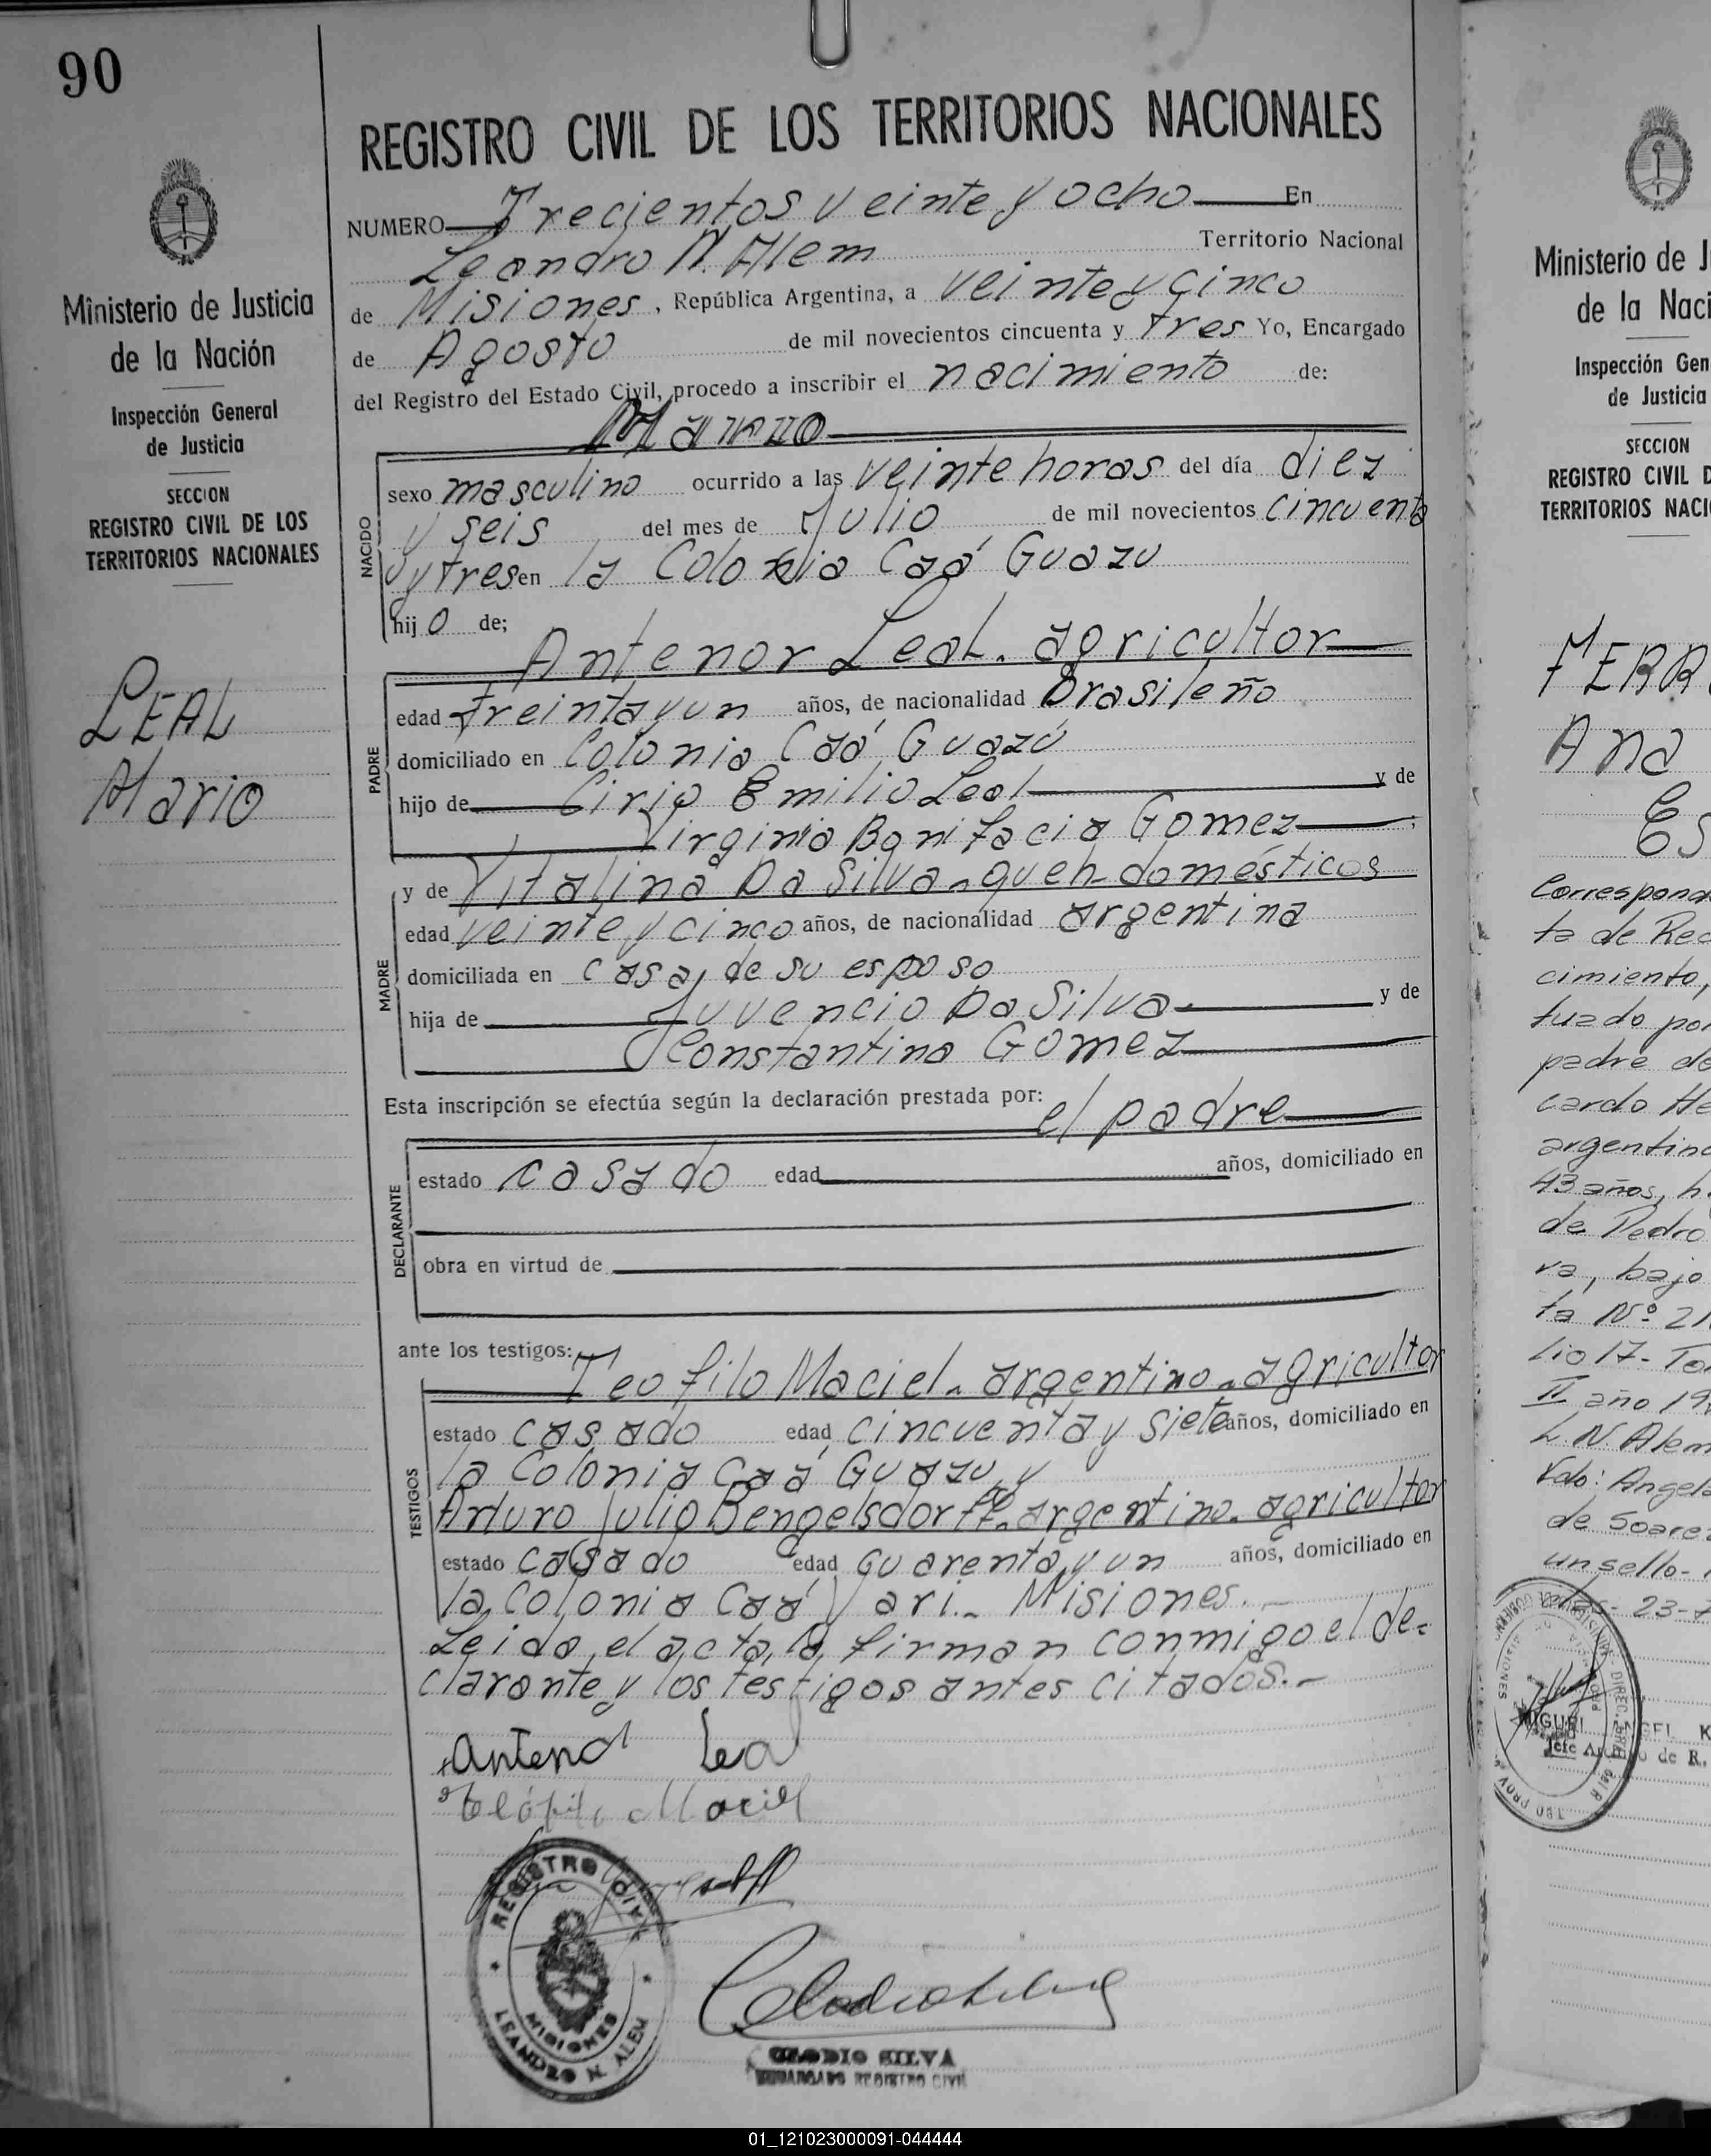 90
REGISTRO CIVIL DE LOS TERRITORIOS NACIONALES
NUMERO Trecientos veinte y ocho En
Leandro N. Alem Territorio Nacional
de Misiones, República Argentina, a veinte y cinco
de Agosto de mil novecientos cincuenta y tres Yo, Encargado
del Registro del Estado Civil, procedo a inscribir el nacimiento de:
Ministerio de Justicia
de la Nación
Inspección General
de Justicia
SECCION
REGISTRO CIVIL DE LOS
TERRITORIOS NACIONALES
LEAL
Mario
NACIDO
sexo masculino ocurrido a las veinte horas del día diez
y seis del mes de Julio de mil novecientos cincuenta
y tres en la Colonia Caá Guazu
hijo de;
Antenor Leal. agricultor
PADRE
edad treinta y un años, de nacionalidad brasileño
domiciliado en Colonia Caá Guazú
hijo de Cirio Emilio Leal y de
Virginia Bonifacia Gomez;
MADRE
y de Vitalina Da Silva. queh-domésticos
edad veinte y cinco años, de nacionalidad argentina
domiciliada en casa, de su esposo
hija de Juvencio Da Silva y de
Constantina Gomez
Esta inscripción se efectúa según la declaración prestada por: el padre
DECLARANTE
estado casado edad años, domiciliado en
obra en virtud de
ante los testigos:
TESTIGOS
Teofilo Maciel. argentino. agricultor
estado casado edad cincuenta y siete años, domiciliado en
la Colonia Caá Guazu, y
Arturo Julio Bengelsdorff. argentino. agricultor
estado casado edad cuarenta y un años, domiciliado en
la Colonia Caá Yari. Misiones.-
Leida el acta, la firman conmigo el de-
clarante y los testigos antes citados.-
Antenor Leal
Maciel
REGISTRO CIVIL
MISIONES
LEANDRO N. ALEM
CLODIO SILVA
ENCARGADO REGISTRO CIVIL
Ministerio de J
de la Naci
Inspección Gen
de Justicia
SECCION
REGISTRO CIVIL D
TERRITORIOS NACI
FERR
Ana
Es
Correspond
ta de Rec
cimiento,
tuado por
padre de
cardo He
argentino
43 años, h.
de Pedro
va, bajo
ta Nº 21
lio 17- To
II año 19
L. N. Alem
Fdo: Angel
de Soare
un sello-
23-7
MIGUEL ANGEL K
Jefe Archivo de R.
01_121023000091-044444